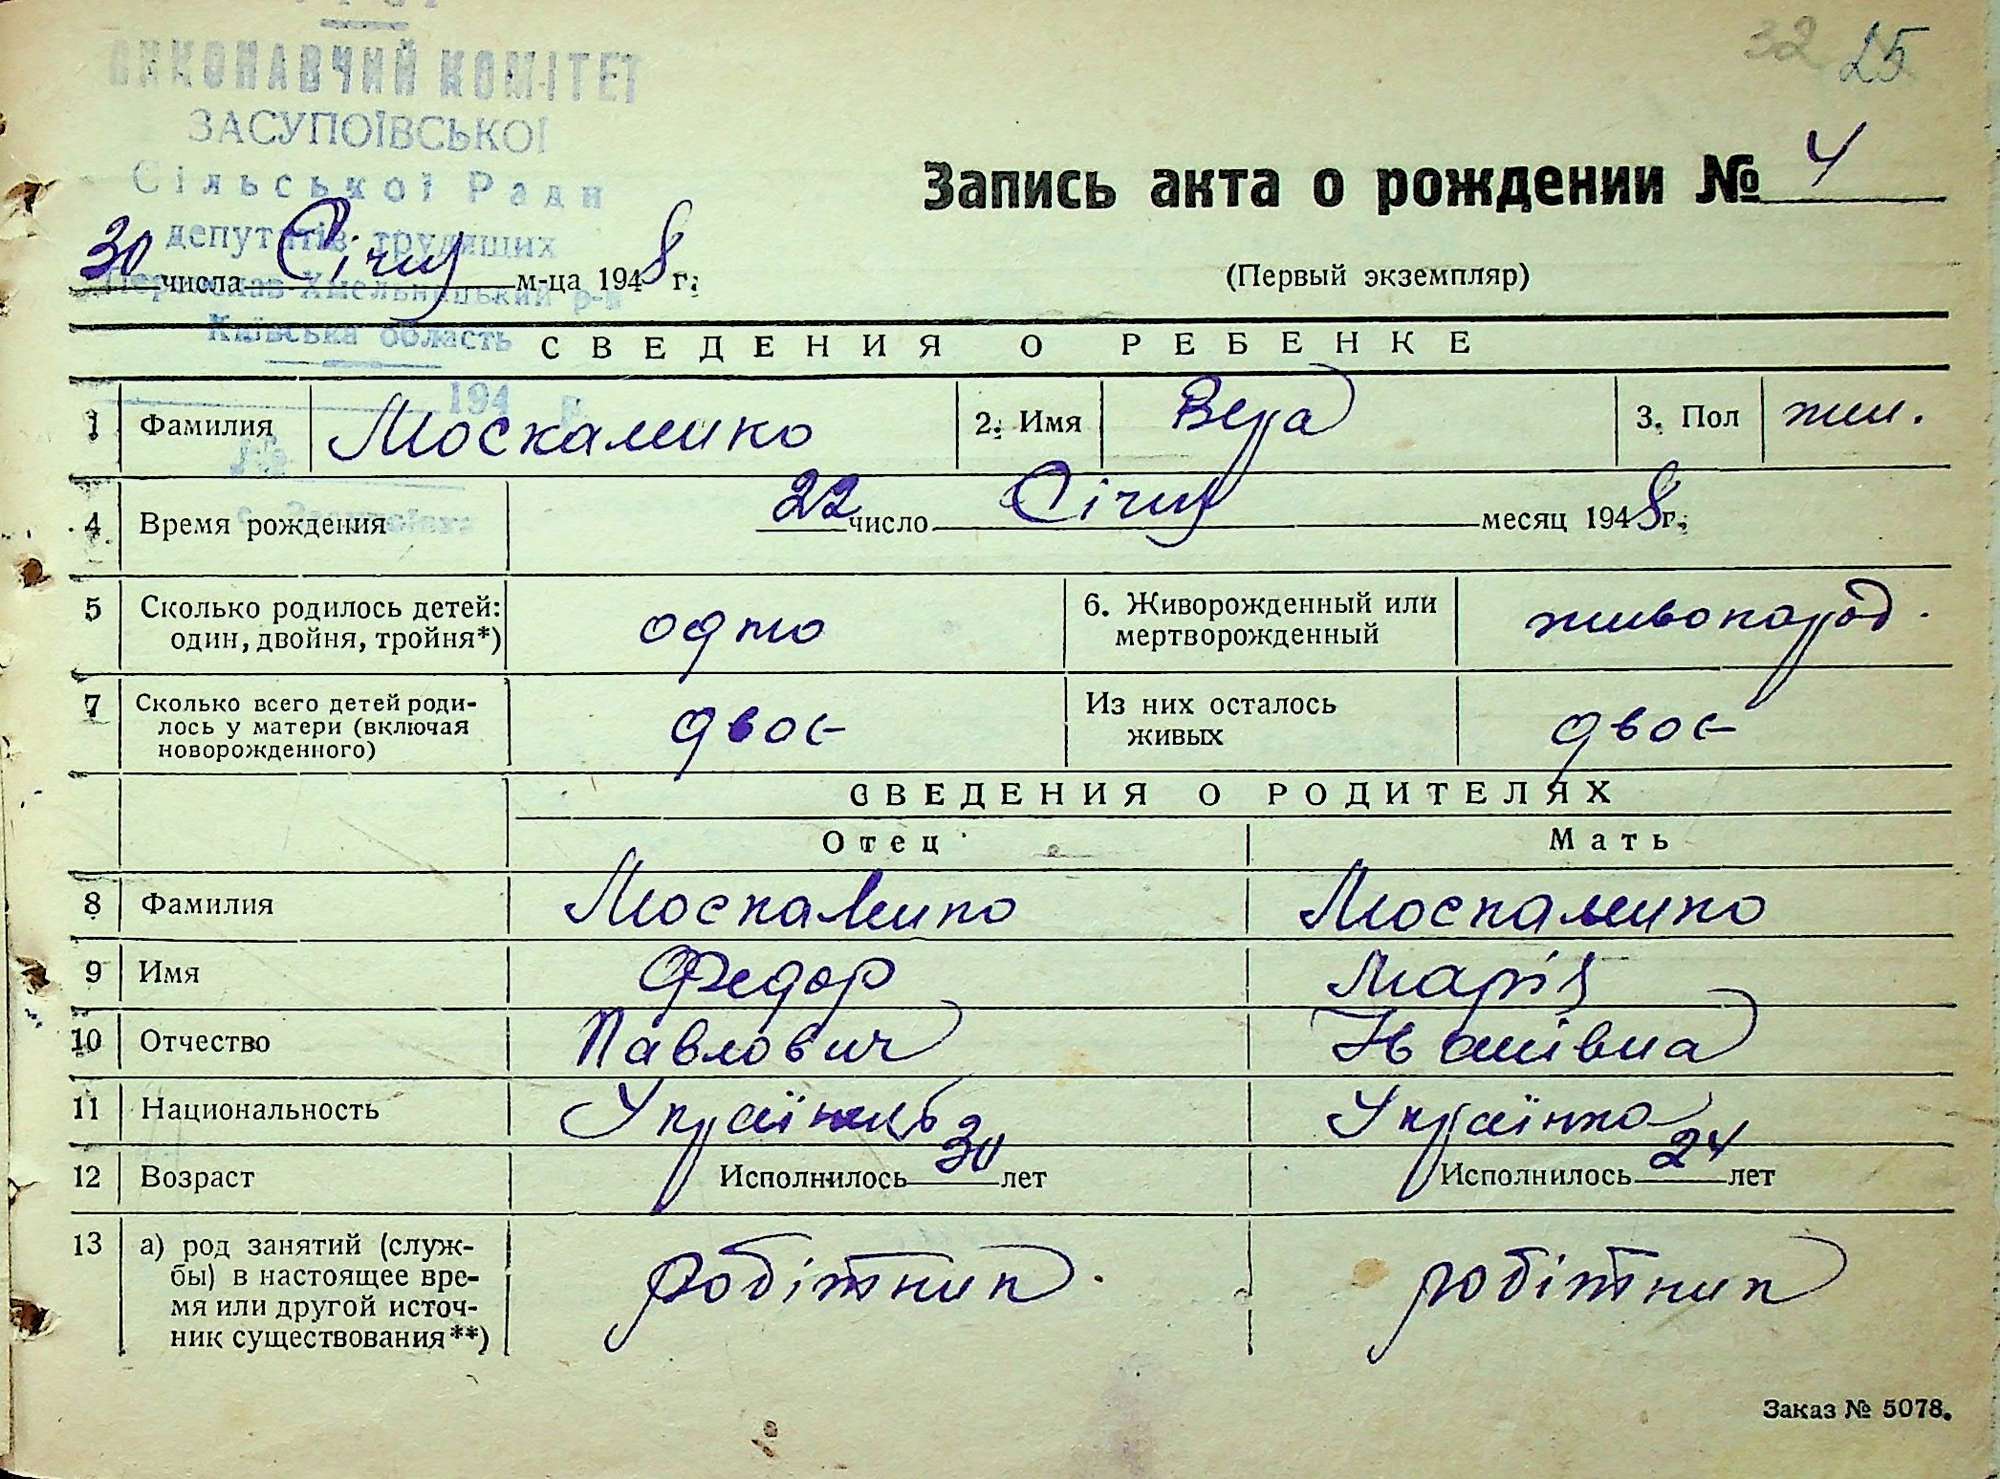 32 25
ВИКОНАВЧИЙ КОМІТЕТ
ЗАСУПОЇВСЬКОЇ
Сільської Ради
депутатів трудящих
Переяслав-Хмельницький р-н
Київська область
194 р.
№
с. Засупоївка
Запись акта о рождении № 4
(Первый экземпляр)
30 числа Січня м-ца 1948 г.
СВЕДЕНИЯ О РЕБЕНКЕ
1 Фамилия Москаленко 2. Имя Вера 3. Пол жін.
4 Время рождения 22 число Січня месяц 1948 г.
5 Сколько родилось детей: один, двойня, тройня*) одно 6. Живорожденный или мертворожденный живонарод.
7 Сколько всего детей родилось у матери (включая новорожденного) двоє Из них осталось живых двоє
СВЕДЕНИЯ О РОДИТЕЛЯХ
Отец Мать
8 Фамилия Москаленко Москаленко
9 Имя Федор Марія
10 Отчество Павлович Іванівна
11 Национальность Українець Українка
12 Возраст Исполнилось 30 лет Исполнилось 24 лет
13 а) род занятий (службы) в настоящее время или другой источник существования**) робітник. робітник
Заказ № 5078.